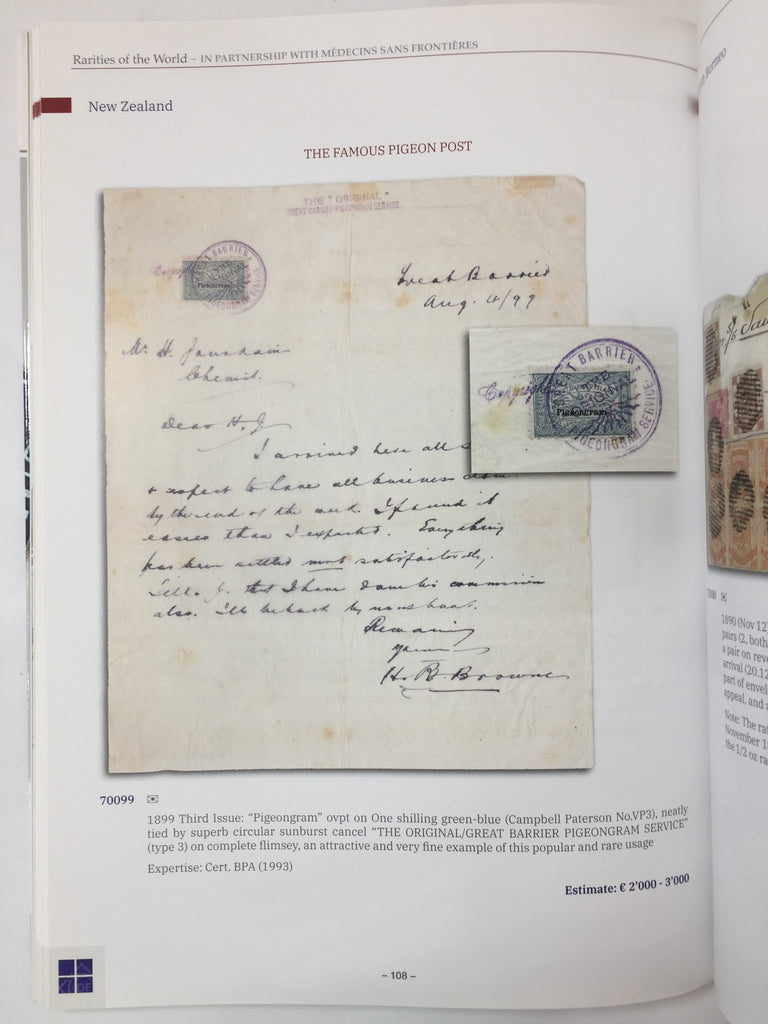 Rarities of the World – IN PARTNERSHIP WITH MÉDECINS SANS FRONTIÈRES
New Zealand
THE FAMOUS PIGEON POST
THE "ORIGINAL"
GREAT BARRIER PIGEONGRAM SERVICE.
Copyright
Great Barrier
Aug. 4/99
Mr. H. Jourdain
Chemist.
Dear H. J.
I arrived here all
& expect to have all business done
by the end of the week. I found it
easier than I expected. Everything
has been settled most satisfactorily.
Tell J. that I have done his commission
also. I'll be back by next boat.
Remaining
Yours
H. B. Browne
Copyright
GREAT BARRIER
Pigeongram
PIGEONGRAM SERVICE
70099
1899 Third Issue: “Pigeongram” ovpt on One shilling green-blue (Campbell Paterson No.VP3), neatly
tied by superb circular sunburst cancel “THE ORIGINAL/GREAT BARRIER PIGEONGRAM SERVICE”
(type 3) on complete flimsey, an attractive and very fine example of this popular and rare usage
Expertise: Cert. BPA (1993)
Estimate: € 2’000 - 3’000
– 108 –
Borneo
1890 (Nov 12
pairs (2, both
a pair on reve
arrival (20.12
part of envel
appeal, and a
Note: The ra
November 1
the 1/2 oz ra